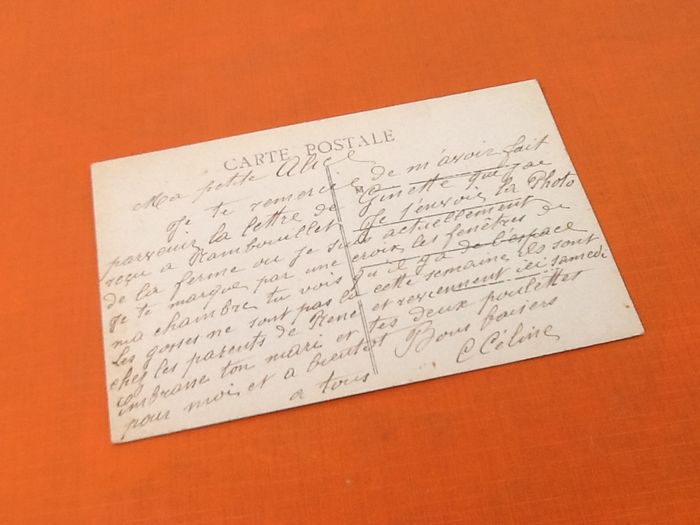 CARTE POSTALE
Ma petite Alice
Je te remercie de m'avoir fait
parvenir la lettre de Ginette que j'ai
reçu a Rambouillet Je t'envoie la Photo
de la ferme ou je suis actuellement
Je te marque par une croix les fenêtres de
ma chambre tu vois qu'il y a de l'espace
Les gosses ne sont pas la cette semaine ils sont
chez les parents de René et reviennent ici samedi
Embrasse ton mari et tes deux poulettes
pour moi et a bientot Bons baisers
a tous C Céline